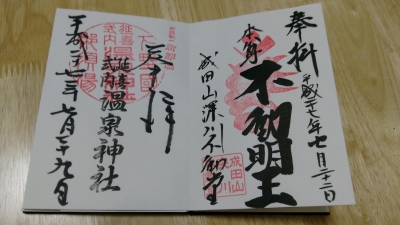 奉拝
平成二十七年七月二十二日
本尊
不動明王
成田山深川不動堂
成田山
深川
延喜
式内
温泉神社
平成二十七年七月二十九日
下野国
延喜
式内